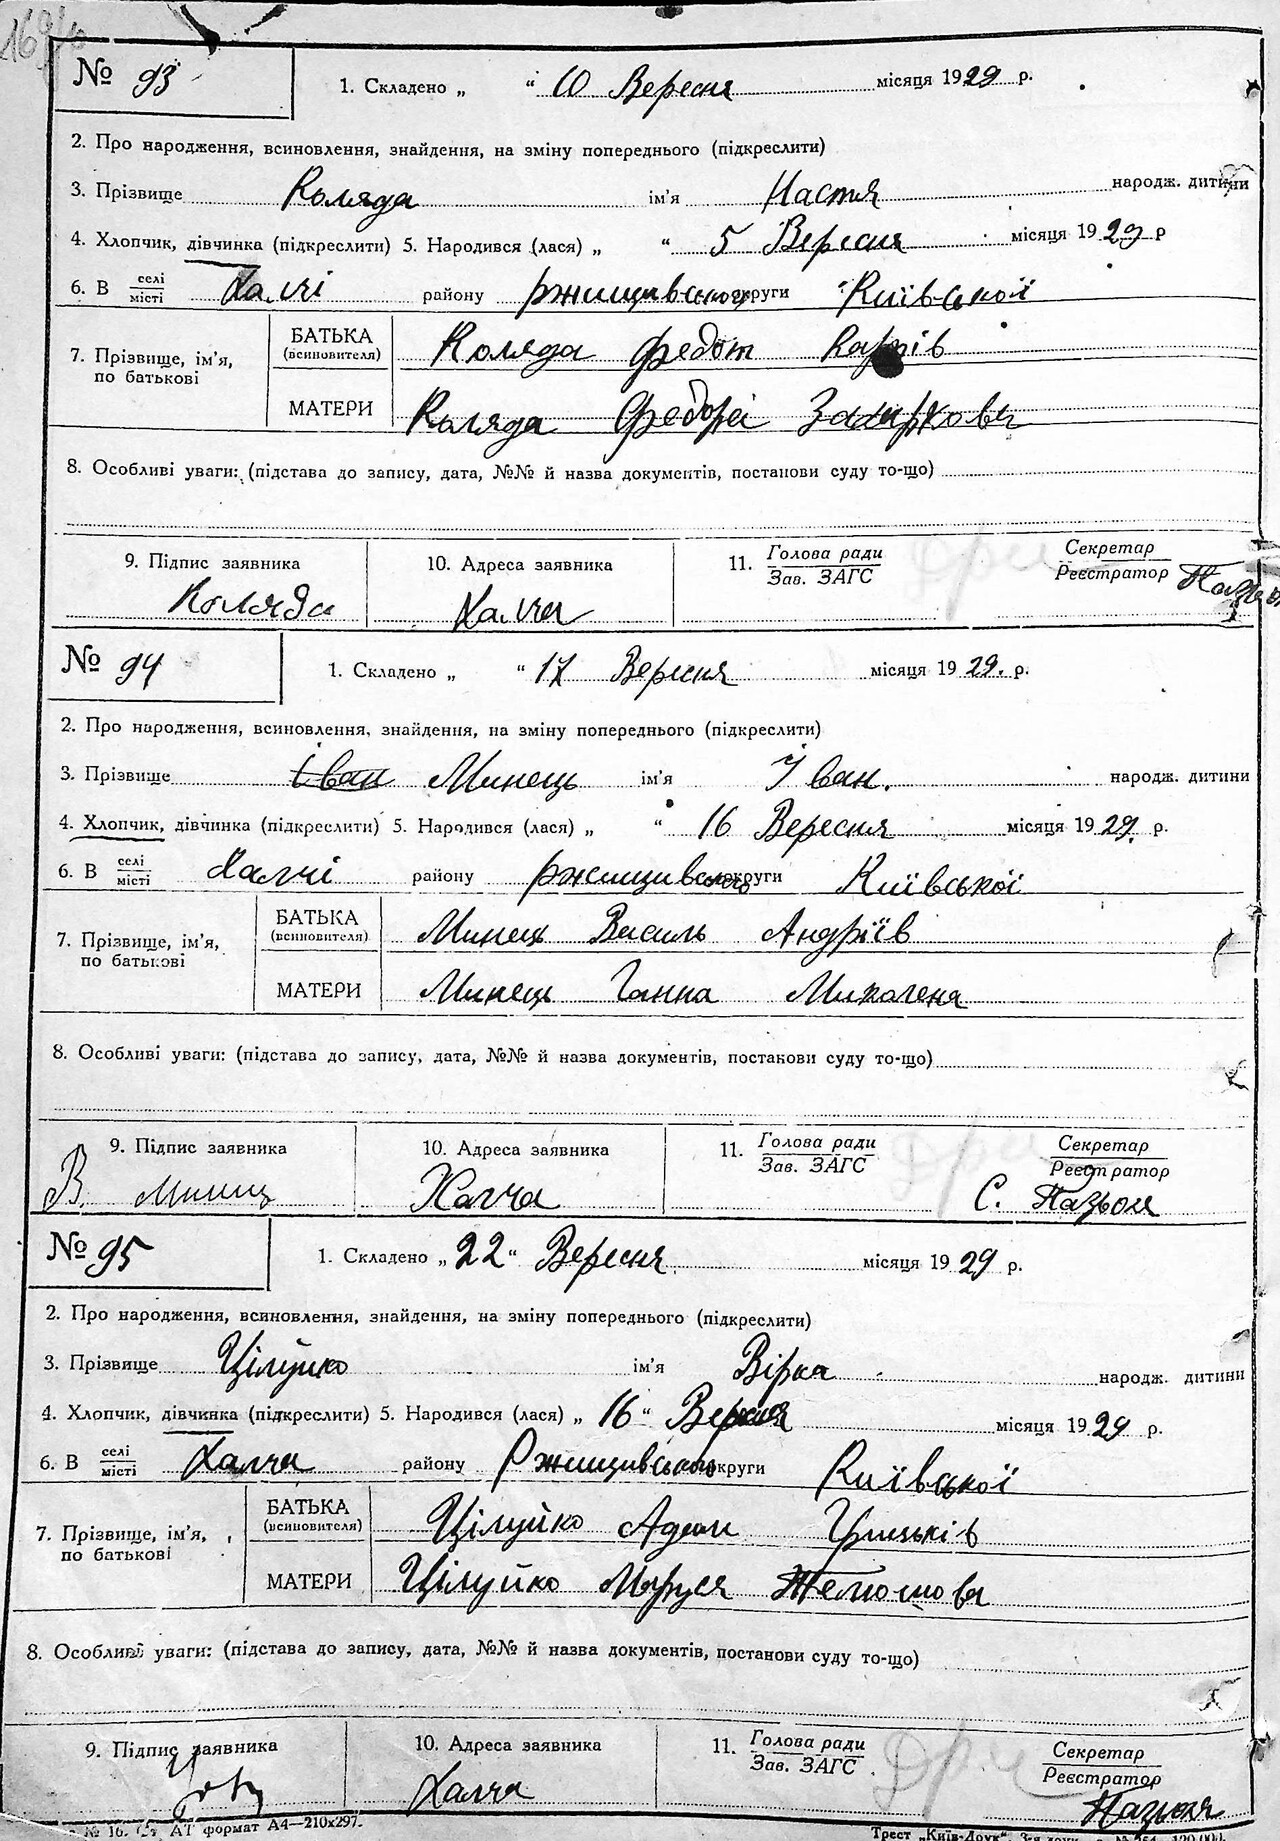 № 93 1. Складено „ “ 10 Вересня місяця 1929 р.
2. Про народження, всиновлення, знайдення, на зміну попереднього (підкреслити)
3. Прізвище Коляда ім'я Настя народж. дитини
4. Хлопчик, дівчинка (підкреслити) 5. Народився (лася) „ “ 5 Вересня місяця 1929 р
6. В селі/місті Халчі району Ржищивського округи Київської
7. Прізвище, ім'я, по батькові БАТЬКА (всиновителя) Коляда Федот
МАТЕРИ Коляда Федора Захаркова
8. Особливі уваги: (підстава до запису, дата, №№ й назва документів, постанови суду то-що)
9. Підпис заявника 10. Адреса заявника 11. Голова ради / Зав. ЗАГС Секретар / Реєстратор
Коляда Халча
№ 94 1. Складено „ “ 17 Вересня місяця 1929. р.
2. Про народження, всиновлення, знайдення, на зміну попереднього (підкреслити)
3. Прізвище Іван Минець ім'я Іван. народж. дитини
4. Хлопчик, дівчинка (підкреслити) 5. Народився (лася) „ “ 16 Вересня місяця 1929. р.
6. В селі/місті Халчі району Ржищивського округи Київської
7. Прізвище, ім'я, по батькові БАТЬКА (всиновителя) Минець Василь Андріїв
МАТЕРИ Минець Ганна Миколена
8. Особливі уваги: (підстава до запису, дата, №№ й назва документів, постанови суду то-що)
9. Підпис заявника 10. Адреса заявника 11. Голова ради / Зав. ЗАГС Секретар / Реєстратор
В. Минец Халча С.
№ 95 1. Складено „ 22 “ Вересня місяця 1929 р.
2. Про народження, всиновлення, знайдення, на зміну попереднього (підкреслити)
3. Прізвище Цілуйко ім'я Вірка народж. дитини
4. Хлопчик, дівчинка (підкреслити) 5. Народився (лася) „ 16 “ Вересня місяця 1929 р.
6. В селі/місті Халча району Ржищивського округи Київської
7. Прізвище, ім'я, по батькові БАТЬКА (всиновителя) Цілуйко Адам Грицьків
МАТЕРИ Цілуйко Маруся
8. Особливі уваги: (підстава до запису, дата, №№ й назва документів, постанови суду то-що)
9. Підпис заявника 10. Адреса заявника 11. Голова ради / Зав. ЗАГС Секретар / Реєстратор
Халча
АТ формат А4—210х297. Трест „Київ-Друк“